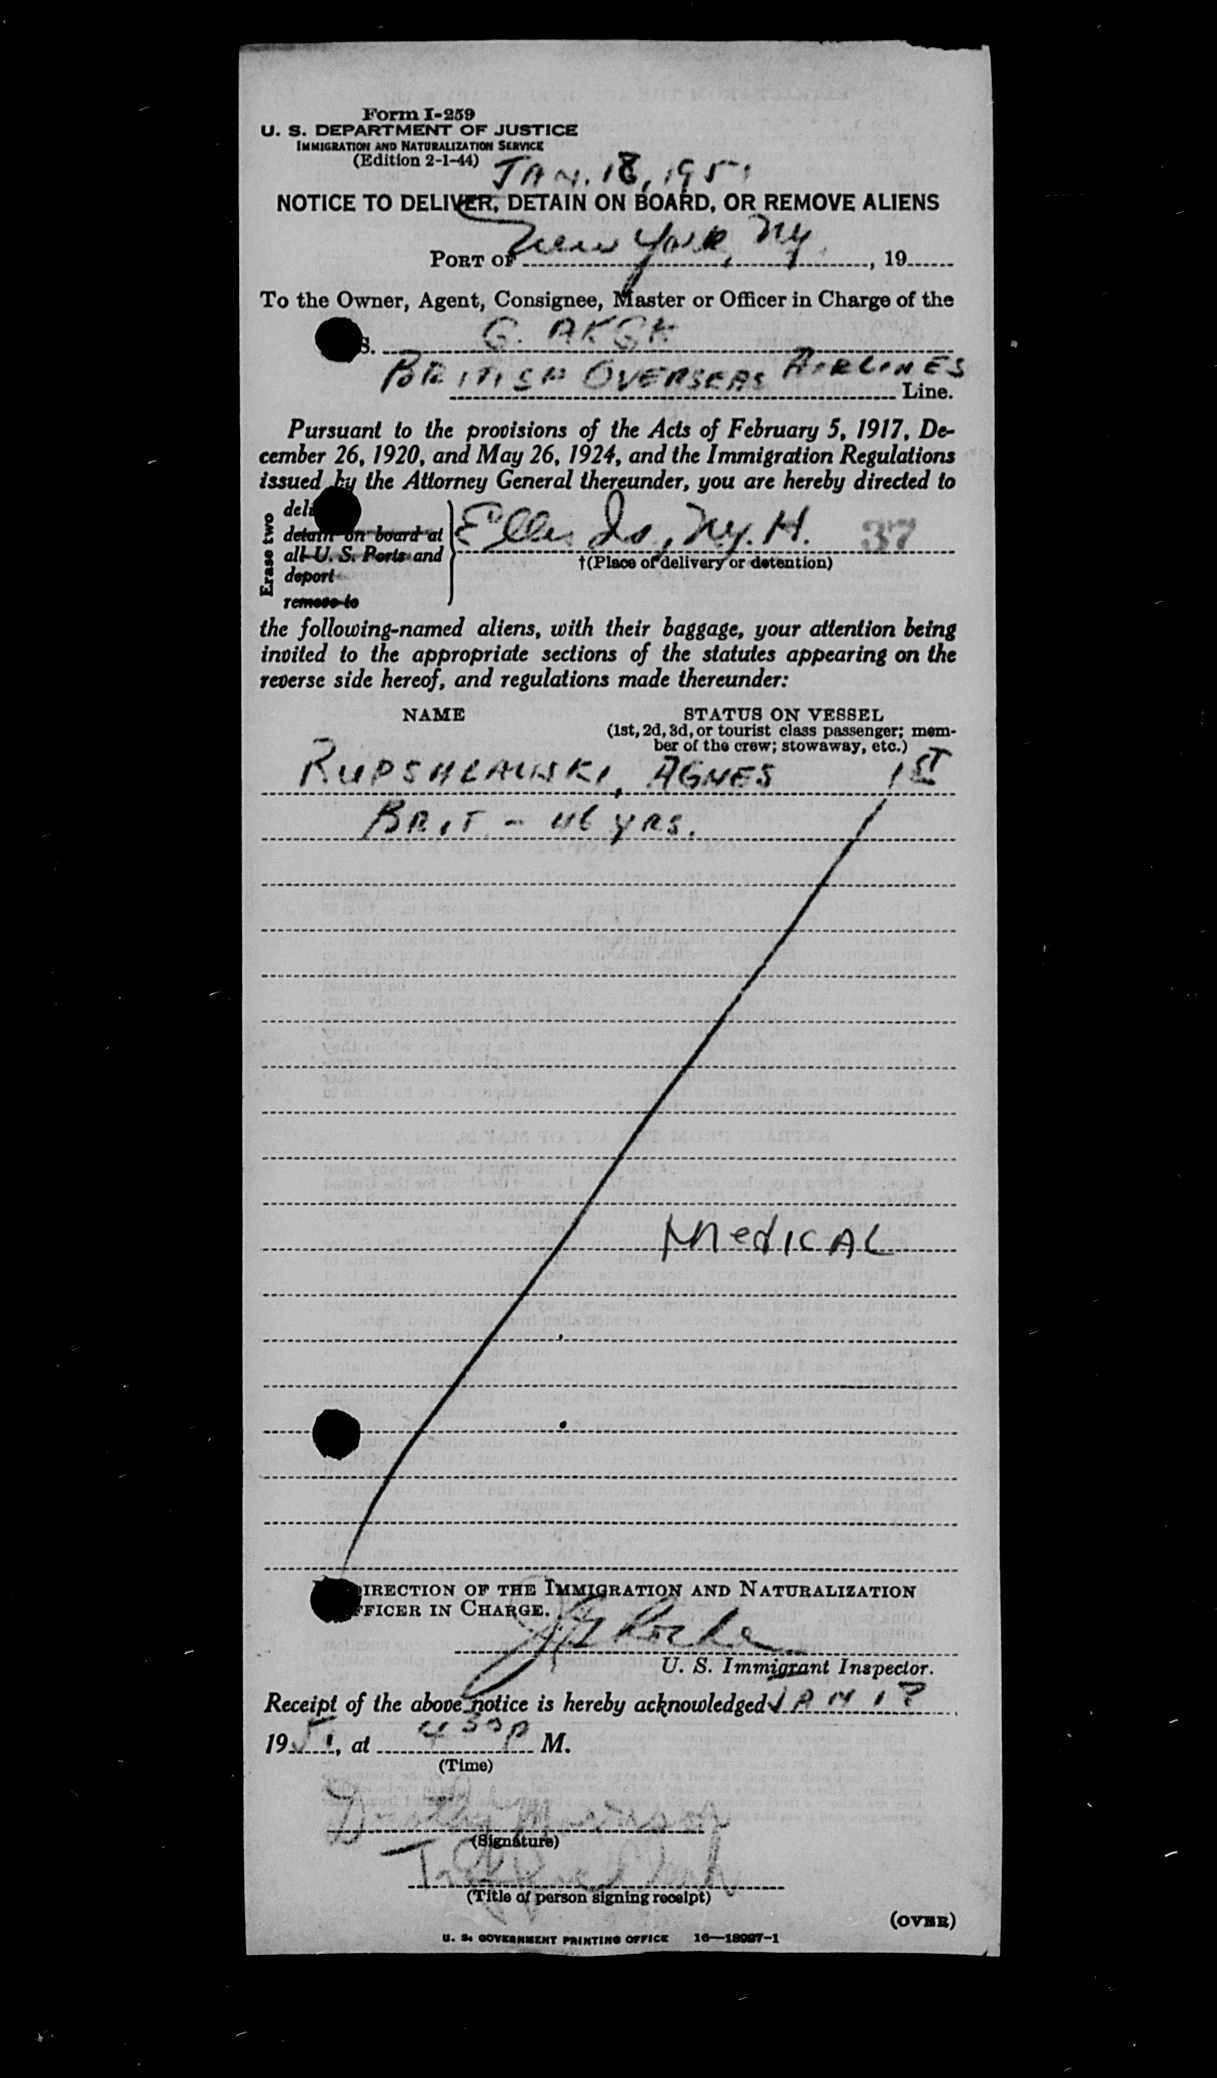 Form I-259
U. S. DEPARTMENT OF JUSTICE
IMMIGRATION AND NATURALIZATION SERVICE
(Edition 2-1-44)
JAN. 18, 1951
NOTICE TO DELIVER, DETAIN ON BOARD, OR REMOVE ALIENS
PORT OF New York, Ny. , 19
To the Owner, Agent, Consignee, Master or Officer in Charge of the
S. G. AKGK
BRITISH OVERSEAS AIRLINES
Line.
Pursuant to the provisions of the Acts of February 5, 1917, De-
cember 26, 1920, and May 26, 1924, and the Immigration Regulations
issued by the Attorney General thereunder, you are hereby directed to
Erase two
deli
detain on board at
all U. S. Ports and
deport
remove to
Ellis Is, Ny. H. 37
†(Place of delivery or detention)
the following-named aliens, with their baggage, your attention being
invited to the appropriate sections of the statutes appearing on the
reverse side hereof, and regulations made thereunder:
NAME STATUS ON VESSEL
(1st, 2d, 3d, or tourist class passenger; mem-
ber of the crew; stowaway, etc.)
AGNES 1ST
BRIT. - 46 YRS.
MEDICAL
DIRECTION OF THE IMMIGRATION AND NATURALIZATION
OFFICER IN CHARGE.
U. S. Immigrant Inspector.
Receipt of the above notice is hereby acknowledged JAN 1
1951, at 430 P M.
(Time)
(Signature)
(Title of person signing receipt)
(OVER)
U. S. GOVERNMENT PRINTING OFFICE 16—18097-1